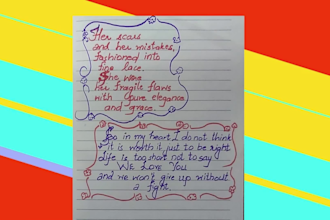 Her scars
and her mistakes,
fashioned into
fine lace.
She wore
her fragile flaws
with pure elegance
and grace.
So in my heart I do not think
it is worth it just to be right
Life is too short not to say
WE LOVE YOU
and we won't give up without
a fight.